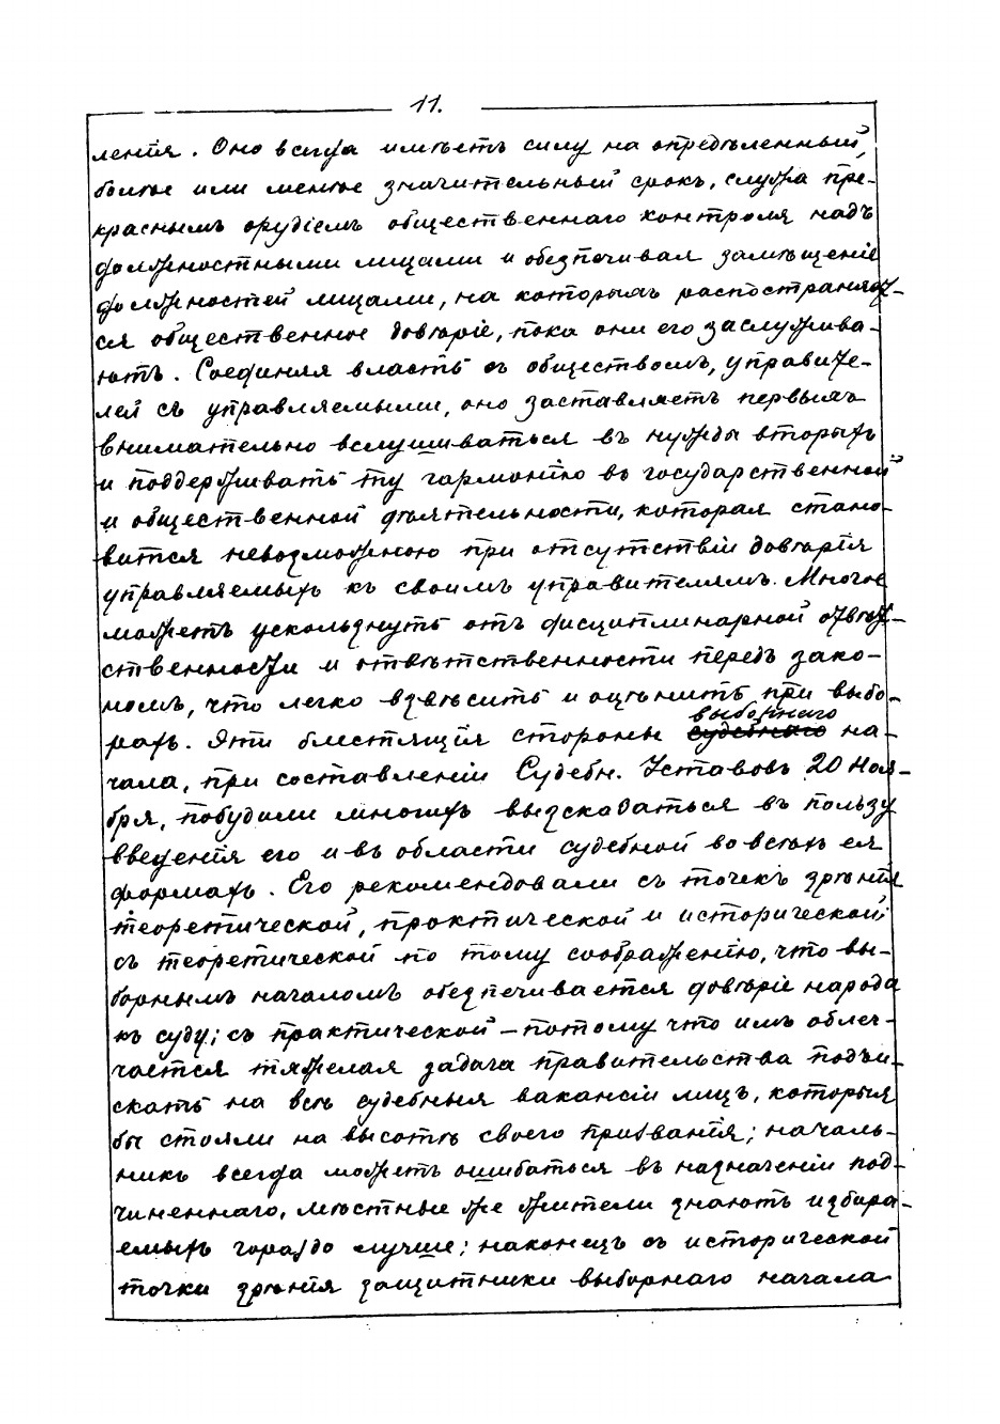 11.
ленія. Оно всегда имѣетъ силу на опредѣленный,
болѣе или менѣе значительный срокъ, служа пре-
краснымъ орудіемъ общественнаго контроля надъ
должностными лицами и обезпечивая замѣщеніе
должностей лицами, на которыхъ распостраняет-
ся общественное довѣріе, пока они его заслужива-
ютъ. Соединяя власть съ обществомъ, управите-
лей съ управляемыми, оно заставляетъ первыхъ
внимательно вслушиваться въ нужды вторыхъ
и поддерживать ту гармонію въ государственной
и общественной дѣятельности, которая стано-
вится невозможною при отсутствіи довѣрія
управляемыхъ къ своимъ управителямъ. Многое
можетъ ускользнуть отъ дисциплинарной отвѣт-
ственности и отвѣтственности передъ зако-
номъ, что легко взвѣсить и оцѣнить при выбо-
выборнаго
рахъ. Эти блестящія стороны судебнаго на-
чала, при составленіи Судебн. Уставовъ 20 Ноя-
бря, побудили многихъ высказаться въ пользу
введенія его и въ области судебной во всѣхъ ея
формахъ. Его рекомендовали съ точекъ зрѣнія
теоретической, практической и исторической;
съ теоретической по тому соображенію, что вы-
борнымъ началомъ обезпечивается довѣріе народа
къ суду; съ практической – потому что имъ облег-
чается тяжелая задача правительства подъи-
скать на всѣ судебныя вакансіи лицъ, которыя
бы стояли на высотѣ своего призванія; началь-
никъ всегда можетъ ошибаться въ назначеніи под-
чиненнаго, мѣстные же жители знаютъ избира-
емыхъ гораздо лучше; наконецъ съ исторической
точки зрѣнія защитники выборнаго начала